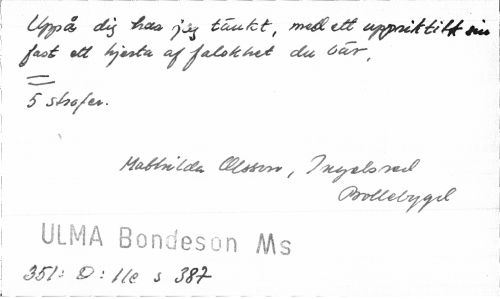 Uppå dig har jag tänkt, med ett uppriktitt sin
fast ett hjerta af falskhet du bär.
5 strofer.
Mathilda Olsson, Ingelsred
Bollebygd
ULMA Bondeson Ms
351: D: 11e s 387